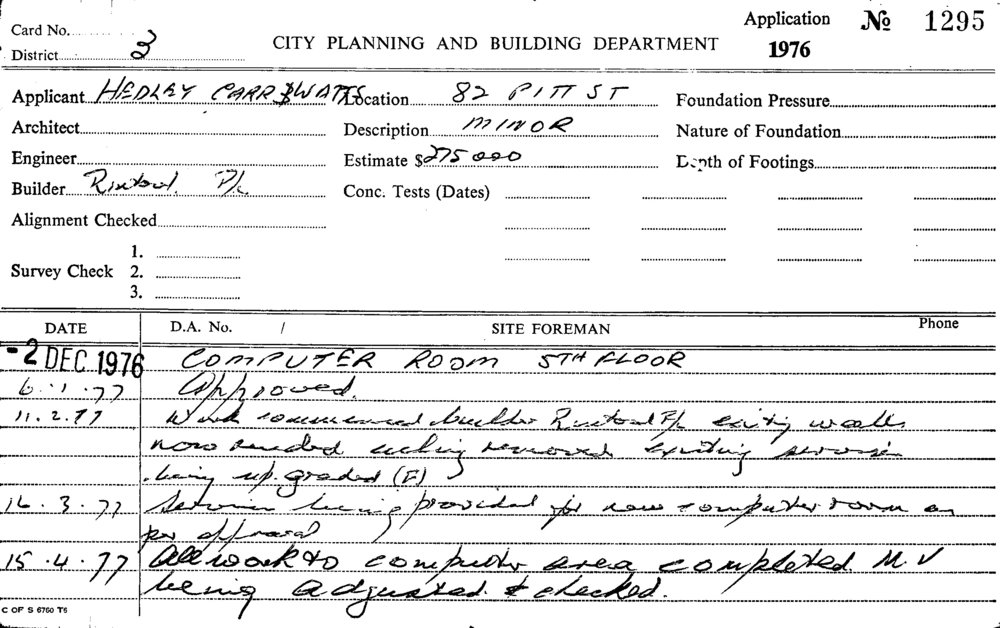 Card No.
District 3
CITY PLANNING AND BUILDING DEPARTMENT
Application № 1295
1976
Applicant HEDLEY CARR & WATTS Location 82 PITT ST Foundation Pressure
Architect Description MINOR Nature of Foundation
Engineer Estimate $275000 Depth of Footings
Builder P/L Conc. Tests (Dates)
Alignment Checked
1.
Survey Check 2.
3.
DATE D.A. No. / SITE FOREMAN Phone
-2 DEC 1976 COMPUTER ROOM 5TH FLOOR
6.1.77 Approved.
11.2.77 Work commenced builder P/L walls
now ceiling removed existing services
being up graded (F)
16.3.77 Services being provided for new computer room as
per approval
15.4.77 All work to computer area completed M.V
being adjusted & checked.
C OF S 6760 T6